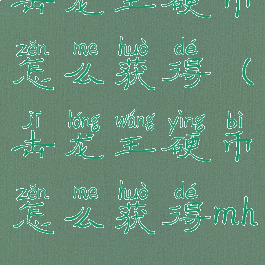 击龙王硬币
zěn me huò dé
怎么获得(
jī lóng wáng yìng bì
击龙王硬币
zěn me huò dé
怎么获得mh